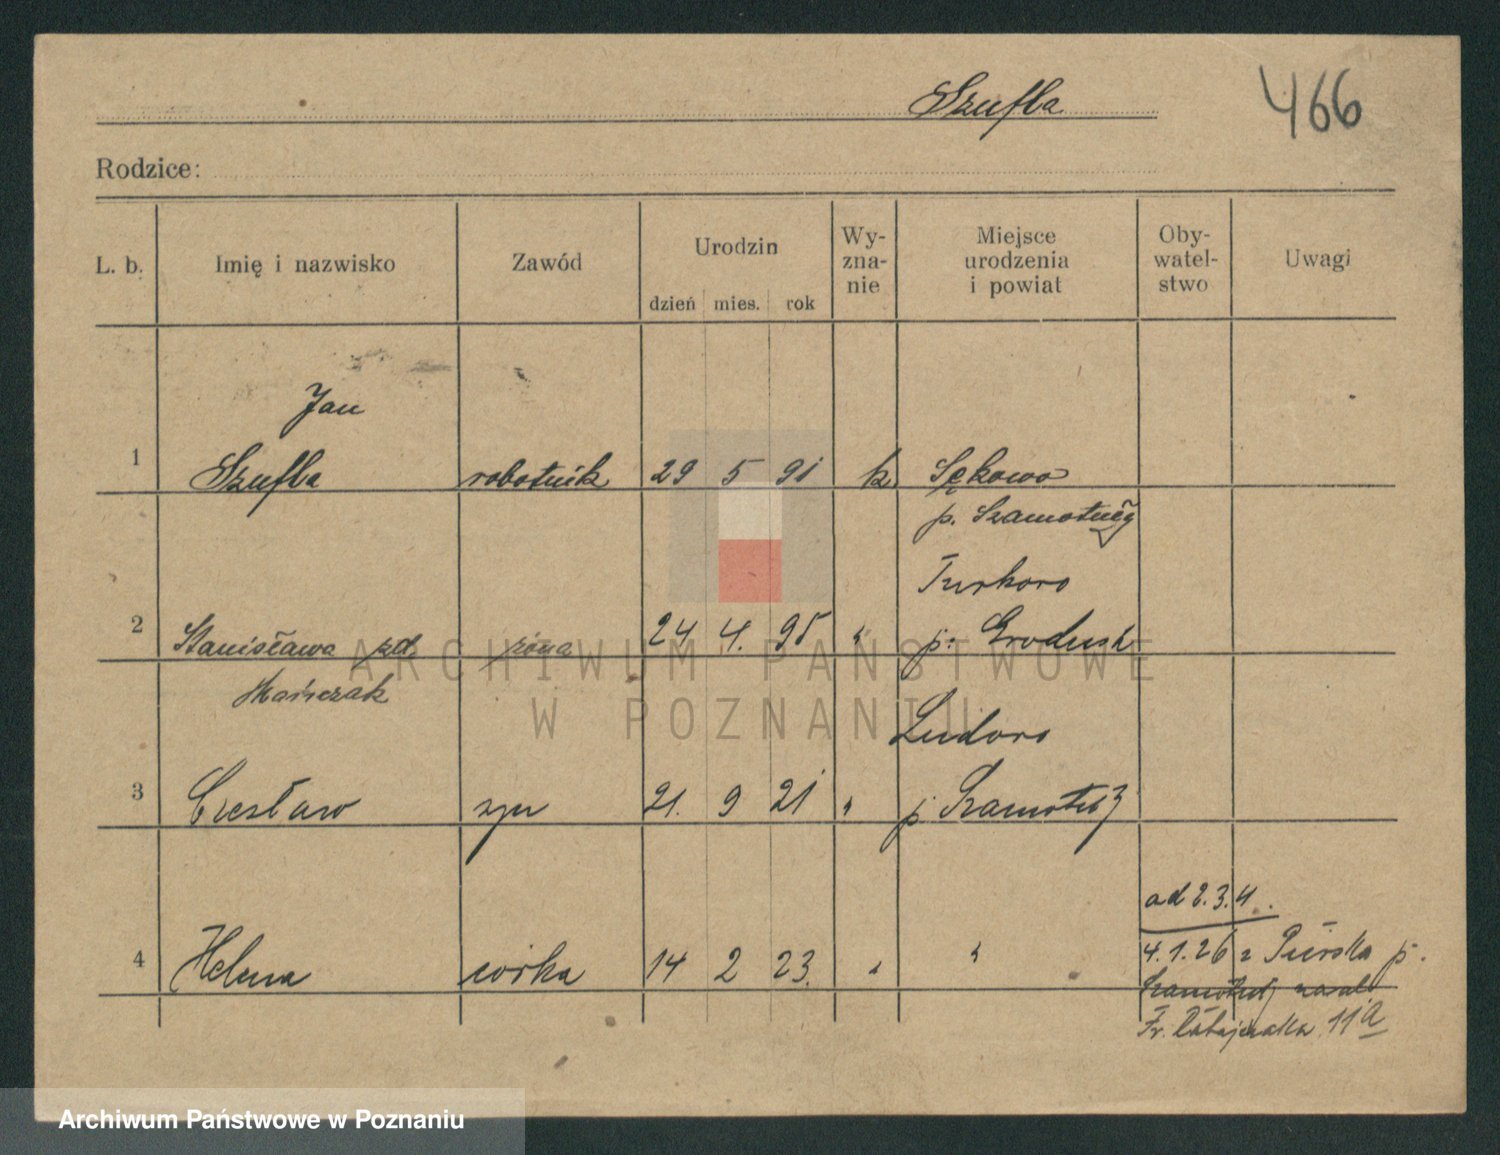 Szufla 466
Rodzice:
L. b. Imię i nazwisko Zawód Urodzin dzień mies. rok Wy-zna-nie Miejsce urodzenia i powiat Oby-watel-stwo Uwagi
Jan
1 Szufla robotnik 29 5 91 k. Sękowo
p. Szamotuły
Turkowo
2 Stanisława zd żona 24 4. 95 " p. Grodzisk
Mańczak
Ludowo
3 Czesław syn 21. 9 21 " p. Szamotuły
ad 2.3.4.
4 Helena córka 14 2 23. " " 4.1.26 z p.
Szamotuły
Fr. Ratajczaka 11a
ARCHIWUM PAŃSTWOWE
W POZNANIU
Archiwum Państwowe w Poznaniu